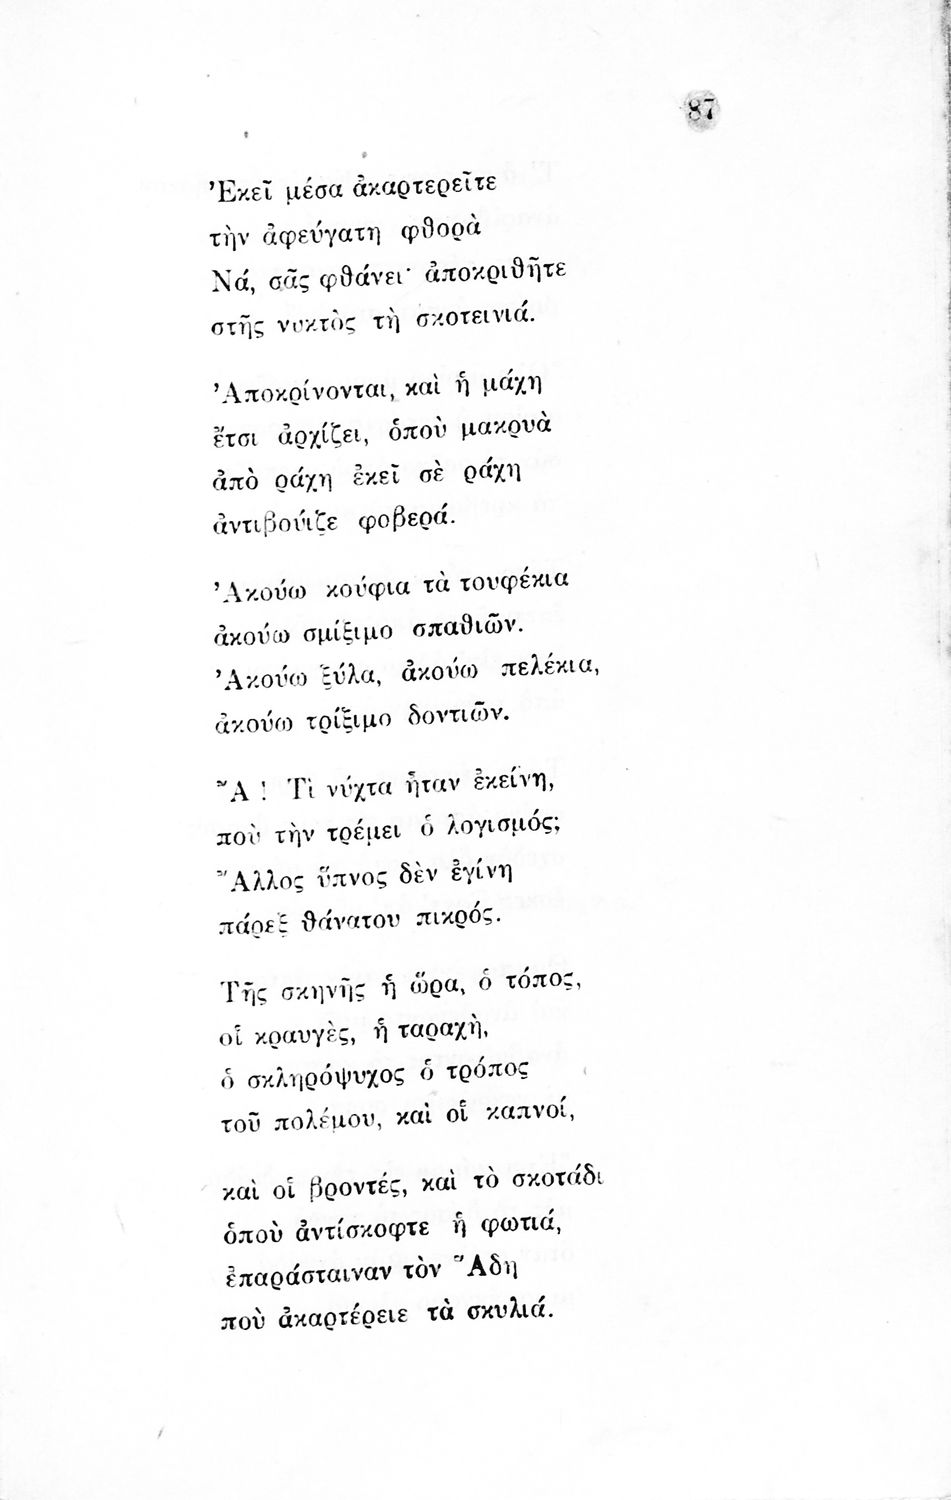 87
Ἐκεῖ μέσα ἀκαρτερεῖτε
τὴν ἀφεύγατη φθορὰ
Νά, σᾶς φθάνει· ἀποκριθῆτε
στῆς νυκτὸς τὴ σκοτεινιά.
Ἀποκρίνονται, καὶ ἡ μάχη
ἔτσι ἀρχίζει, ὁποὺ μακρυὰ
ἀπὸ ράχη ἐκεῖ σὲ ράχη
ἀντιβούιζε φοβερά.
Ἀκούω κούφια τὰ τουφέκια
ἀκούω σμίξιμο σπαθιῶν.
Ἀκούω ξύλα, ἀκούω πελέκια,
ἀκούω τρίξιμο δοντιῶν.
Ἆ! Τὶ νύχτα ἦταν ἐκείνη,
ποὺ τὴν τρέμει ὁ λογισμός;
Ἄλλος ὕπνος δὲν ἐγίνη
πάρεξ θάνατου πικρός.
Τῆς σκηνῆς ἡ ὥρα, ὁ τόπος,
οἱ κραυγὲς, ἡ ταραχὴ,
ὁ σκληρόψυχος ὁ τρόπος
τοῦ πολέμου, καὶ οἱ καπνοί,
καὶ οἱ βροντές, καὶ τὸ σκοτάδι
ὁποὺ ἀντίσκοφτε ἡ φωτιά,
ἐπαράσταιναν τὸν Ἄδη
ποὺ ἀκαρτέρειε τὰ σκυλιά.